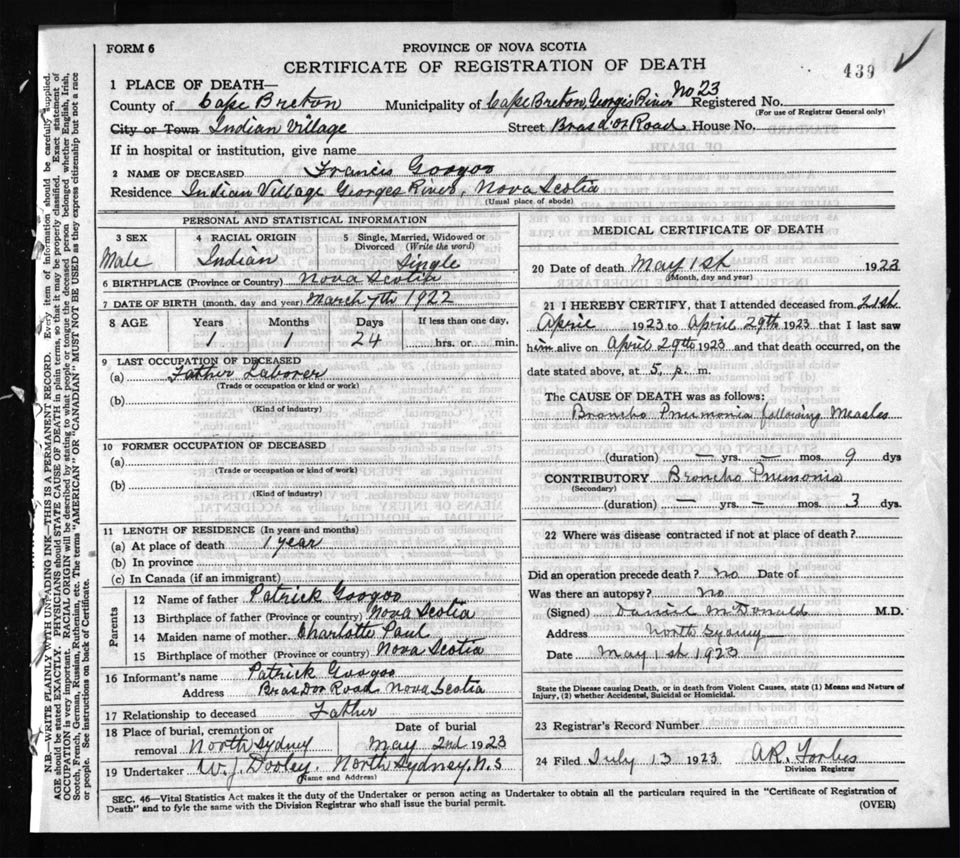 FORM 6
PROVINCE OF NOVA SCOTIA
CERTIFICATE OF REGISTRATION OF DEATH
439
1 PLACE OF DEATH—
County of Cape Breton Municipality of Cape Breton, Georges River No 23 Registered No.
(For use of Registrar General only)
City or Town Indian Village Street Bras d'or Road House No.
If in hospital or institution, give name
2 NAME OF DECEASED Francis Googoo
Residence Indian Village Georges River, Nova Scotia
(Usual place of abode)
PERSONAL AND STATISTICAL INFORMATION
3 SEX 4 RACIAL ORIGIN 5 Single, Married, Widowed or Divorced (Write the word)
Male Indian Single
6 BIRTHPLACE (Province or Country) Nova Scotia
7 DATE OF BIRTH (month, day and year) March 7th 1922
8 AGE Years Months Days If less than one day,
1 1 24 hrs. or min.
9 LAST OCCUPATION OF DECEASED
(a) Father Laborer
(Trade or occupation or kind of work)
(b)
(Kind of industry)
10 FORMER OCCUPATION OF DECEASED
(a)
(Trade or occupation or kind of work)
(b)
(Kind of industry)
11 LENGTH OF RESIDENCE (In years and months)
(a) At place of death 1 year
(b) In province
(c) In Canada (if an immigrant)
Parents
12 Name of father Patrick Googoo
13 Birthplace of father (Province or country) Nova Scotia
14 Maiden name of mother Charlotte Paul
15 Birthplace of mother (Province or country) Nova Scotia
16 Informant's name Patrick Googoo
Address Bras Dor Road Nova Scotia
17 Relationship to deceased Father
18 Place of burial, cremation or removal North Sydney
Date of burial May 2nd 1923
19 Undertaker W. J. Dooley. North Sydney. N.S
(Name and Address)
MEDICAL CERTIFICATE OF DEATH
20 Date of death May 1st 1923
(Month, day and year)
21 I HEREBY CERTIFY, that I attended deceased from
April 1923 to April 29th 1923 that I last saw
him alive on April 29th 1923 and that death occurred, on the
date stated above, at 5 p. m.
The CAUSE OF DEATH was as follows:
Broncho Pnumonia following Measles
(duration) — yrs. — mos. 9 dys
CONTRIBUTORY Broncho Pnumonia
(Secondary)
(duration) — yrs. — mos. 3 dys.
22 Where was disease contracted if not at place of death?
Did an operation precede death? no Date of
Was there an autopsy? no
(Signed) Daniel McDonald M.D.
Address North Sydney
Date May 1st 1923
State the Disease causing Death, or in death from Violent Causes, state (1) Means and Nature of
Injury, (2) whether Accidental, Suicidal or Homicidal.
23 Registrar's Record Number
24 Filed July 13 1923 A R. Forbes
Division Registrar
SEC. 46—Vital Statistics Act makes it the duty of the Undertaker or person acting as Undertaker to obtain all the particulars required in the "Certificate of Registration of
Death" and to fyle the same with the Division Registrar who shall issue the burial permit.
(OVER)
N.B.—WRITE PLAINLY WITH UNFADING INK—THIS IS A PERMANENT RECORD. Every item of information should be carefully supplied.
AGE should be stated EXACTLY. PHYSICIANS should STATE CAUSE OF DEATH in plain terms, so that it may be properly classified. Exact statement of
OCCUPATION is very important. RACIAL ORIGIN will be described by stating to what people or tongue the deceased person belonged whether English, Irish,
Scotch, French, German, Russian, Ruthenian, etc. The terms "AMERICAN" OR "CANADIAN" MUST NOT BE USED as they express citizenship but not a race
or people. See instructions on back of Certificate.